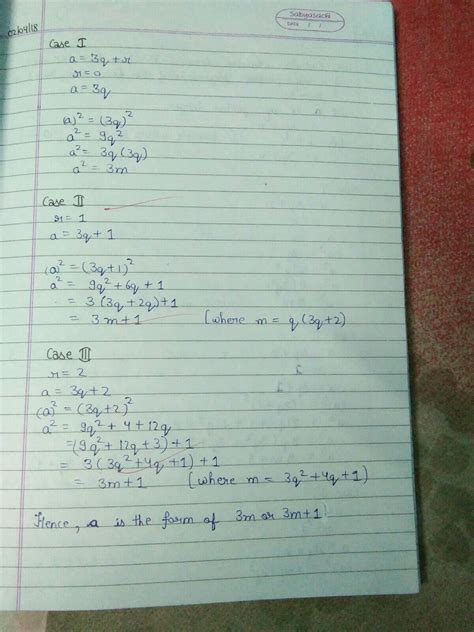 Sabyasachi
DATE / /
02/04/18
Case I
a = 3q + r
r = 0
a = 3q
(a)² = (3q)²
a² = 9q²
a² = 3q (3q)
a² = 3m
Case II
r = 1
a = 3q + 1
(a)² = (3q+1)²
a² = 9q² + 6q + 1
= 3 (3q + 2q) + 1
= 3m + 1 [where m = q (3q+2)
Case III
r = 2
a = 3q + 2
(a)² = (3q+2)²
a² = 9q² + 4 + 12q
= (9q² + 12q + 3) + 1
= 3 (3q² + 4q + 1) + 1
= 3m + 1 [where m = 3q² + 4q + 1)
Hence, a is the form of 3m or 3m+1